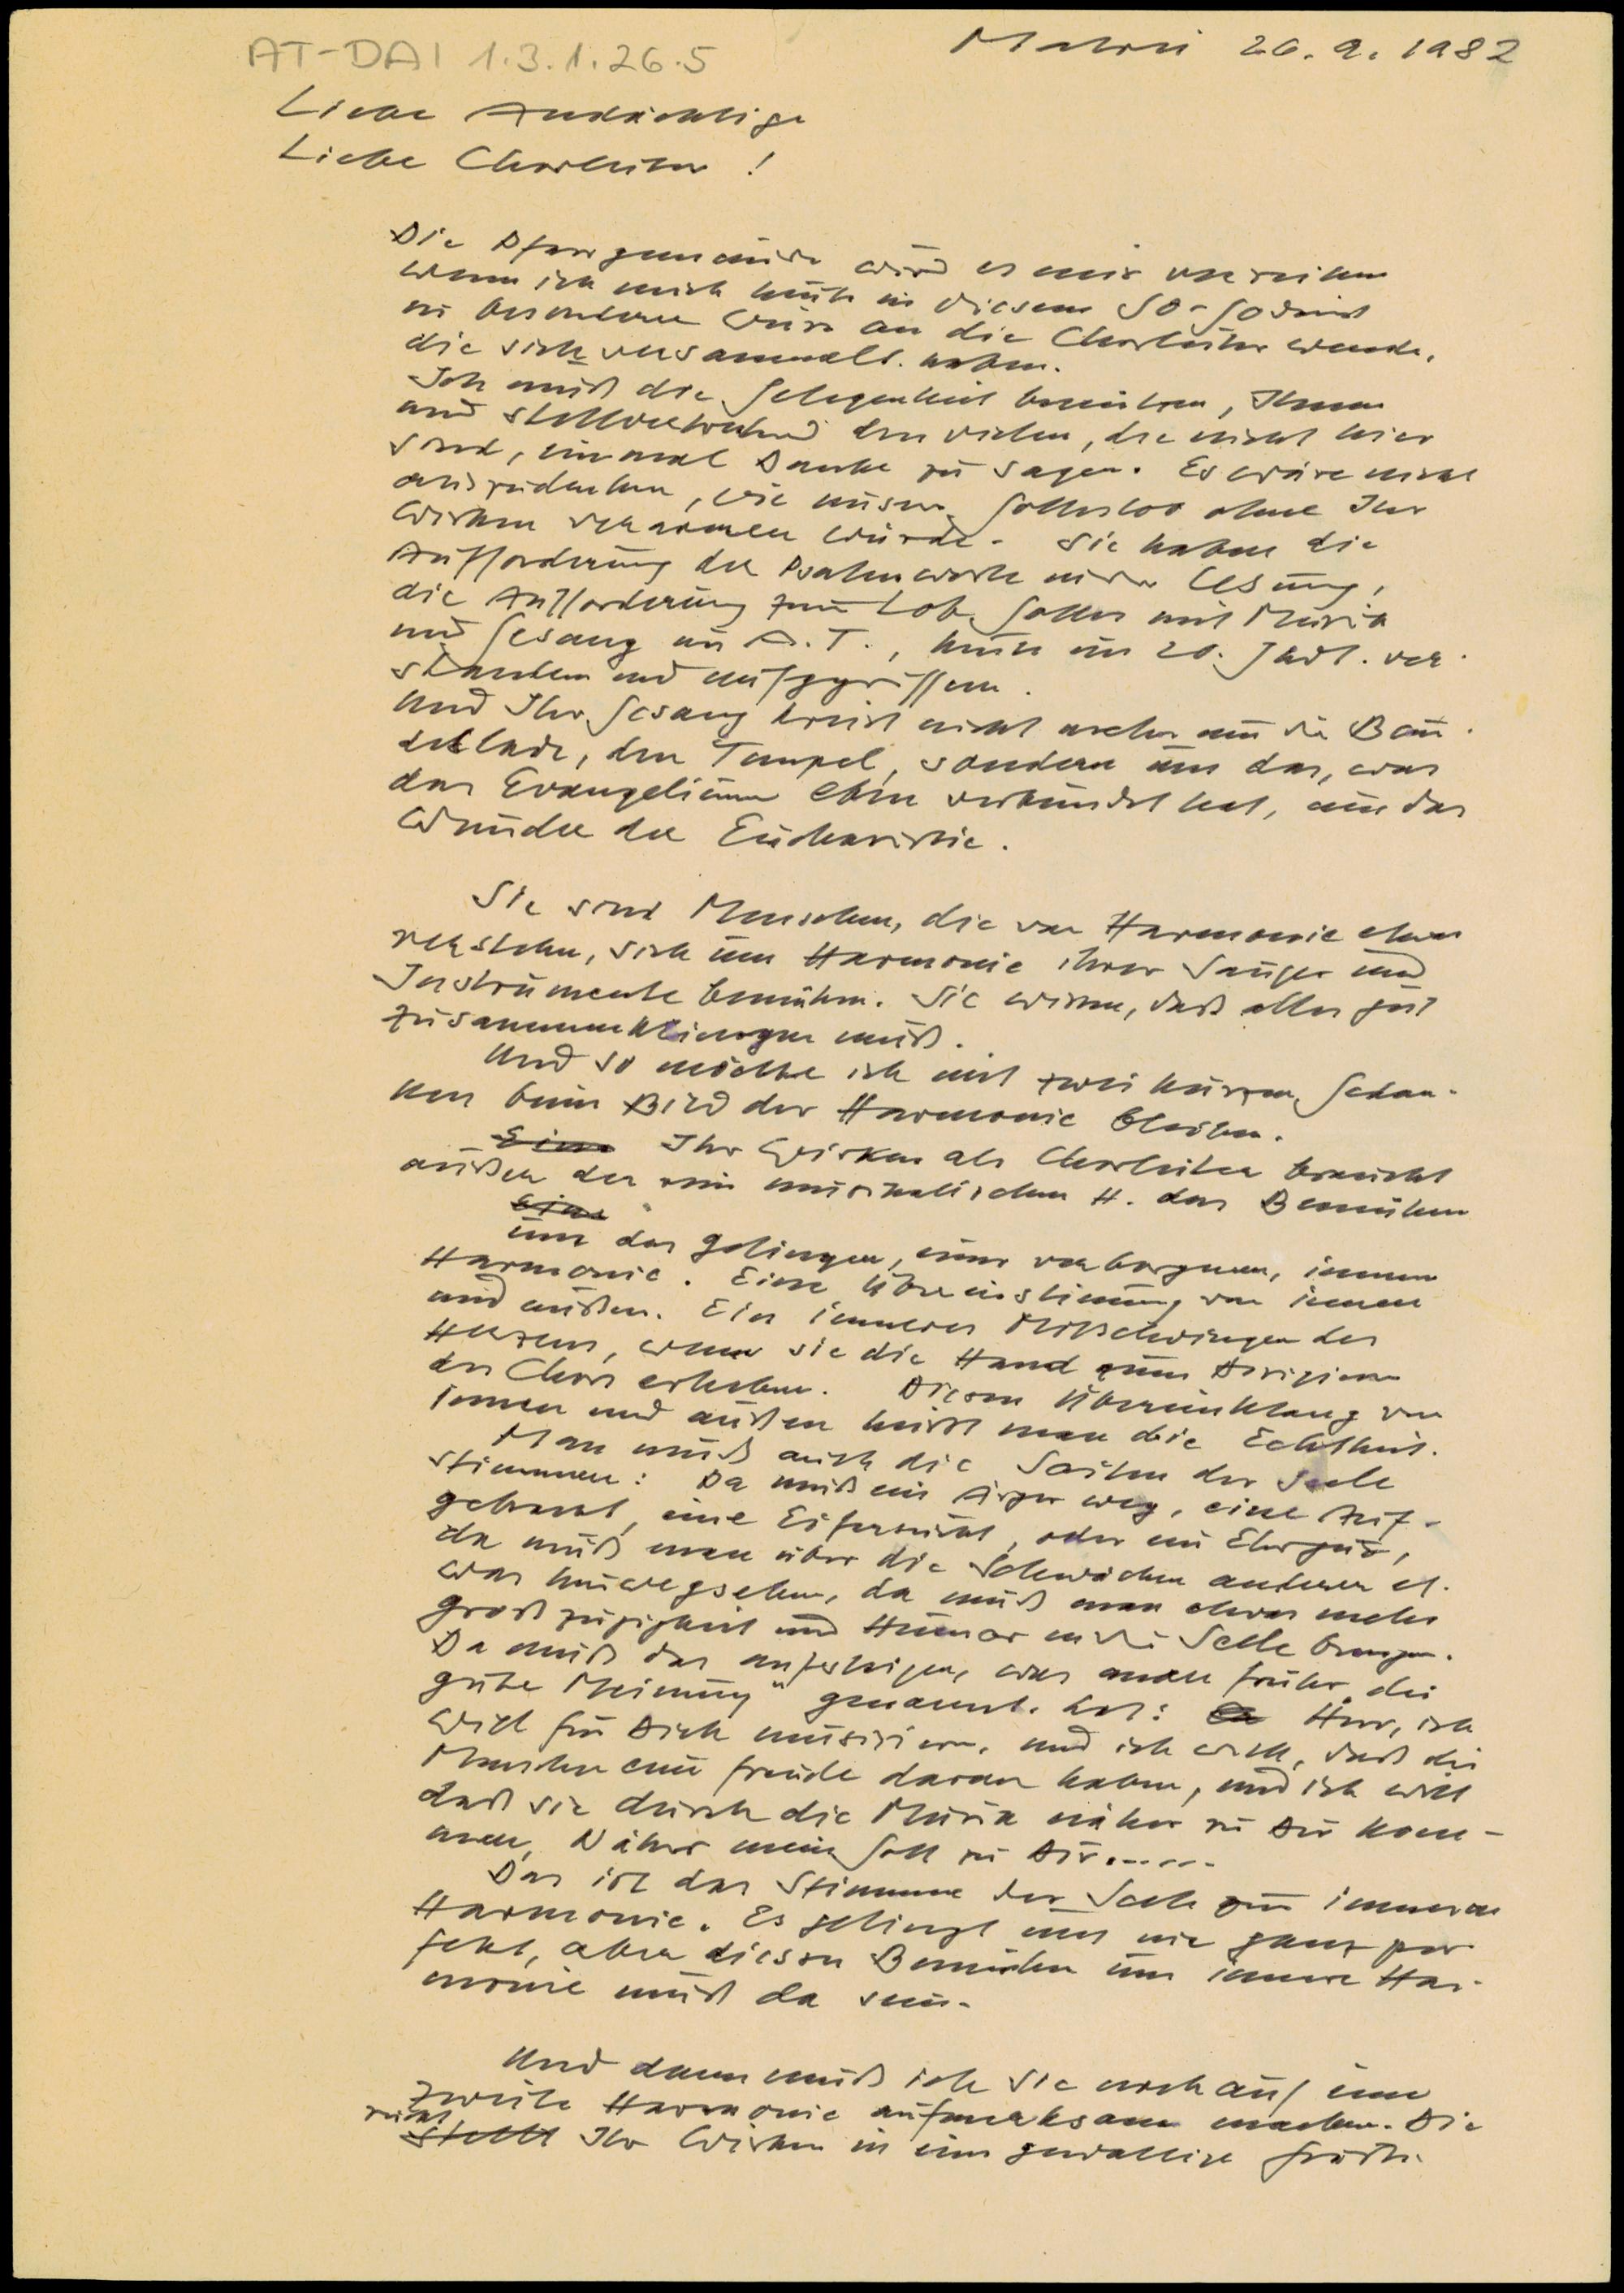 AT-DAI 1.3.1.26.5
Matrei 26.9.1982
Liebe Andächtige
Liebe Chorleiter!
Die Pfarrgemeinde wird es mir verzeihen
wenn ich mich heute in diesem So-Godienst
in besonderer Weise an die Chorleiter wende,
die sich versammelt haben.
Ich muß die Gelegenheit benützen, Ihnen
und stellvertretend den vielen, die nicht hier
sind, einmal Danke zu sagen. Es wäre nicht
auszudenken, wie unser Gotteslob ohne Ihr
Wirken verarmen würde. Sie haben die
Aufforderung der Psalmworte in der Lesung,
die Aufforderung zum Lobe Gottes mit Musik
und Gesang im A.T., heute im 20. Jhdt. ver-
standen und aufgegriffen.
Und Ihr Gesang kreist nicht mehr um die Bun-
deslade, den Tempel, sondern um das, was
das Evangelium eben verkündet hat, um das
Wunder der Eucharistie.
Sie sind Menschen, die von Harmonie etwas
verstehen, sich um Harmonie ihrer Sänger und
Instrumente bemühen. Sie wissen, daß alles gut
zusammenklingen muß.
Und so möchte ich mit zwei kurzen Gedan-
ken beim Bild der Harmonie bleiben.
Eine Ihr Wirken als Chorleiter braucht
außer der rein musikalischen H. das Bemühen
Eine
um das Gelingen einer verborgenen, inneren
Harmonie. Eine Übereinstimmung von innen
und außen. Ein inneres Mitschwingen des
Herzens, wenn sie die Hand zum Dirigieren
des Chors erheben. Diesen Übereinklang von
innen und außen heißt man die Echtheit.
Man muß auch die Saiten der Seele
stimmen: Da muß ein Ärger weg, eine Auf-
gebracht, eine Eifersucht, oder ein Ehrgeiz,
da muß man über die Schwächen anderer et-
was hinwegsehen, da muß man etwas mehr
Großzügigkeit und Humor in die Seele bringen.
Da muß das aufsteigen, was man früher „die
gute Meinung" genannt hat: Herr, ich
will für Dich musizieren, und ich will, daß die
Menschen eine Freude daran haben, und ich will
daß sie durch die Musik näher zu Dir kom-
men, Näher mein Gott zu Dir......
Das ist das Stimmen der Seele zur inneren
Harmonie. Es gelingt uns nie ganz per-
fekt, aber dieses Bemühen um innere Har-
monie muß da sein.
Und dann muß ich Sie noch auf eine
zweite Harmonie aufmerksam machen. Die
rückt
stellt Ihr Wirken in eine gewaltige Größe.